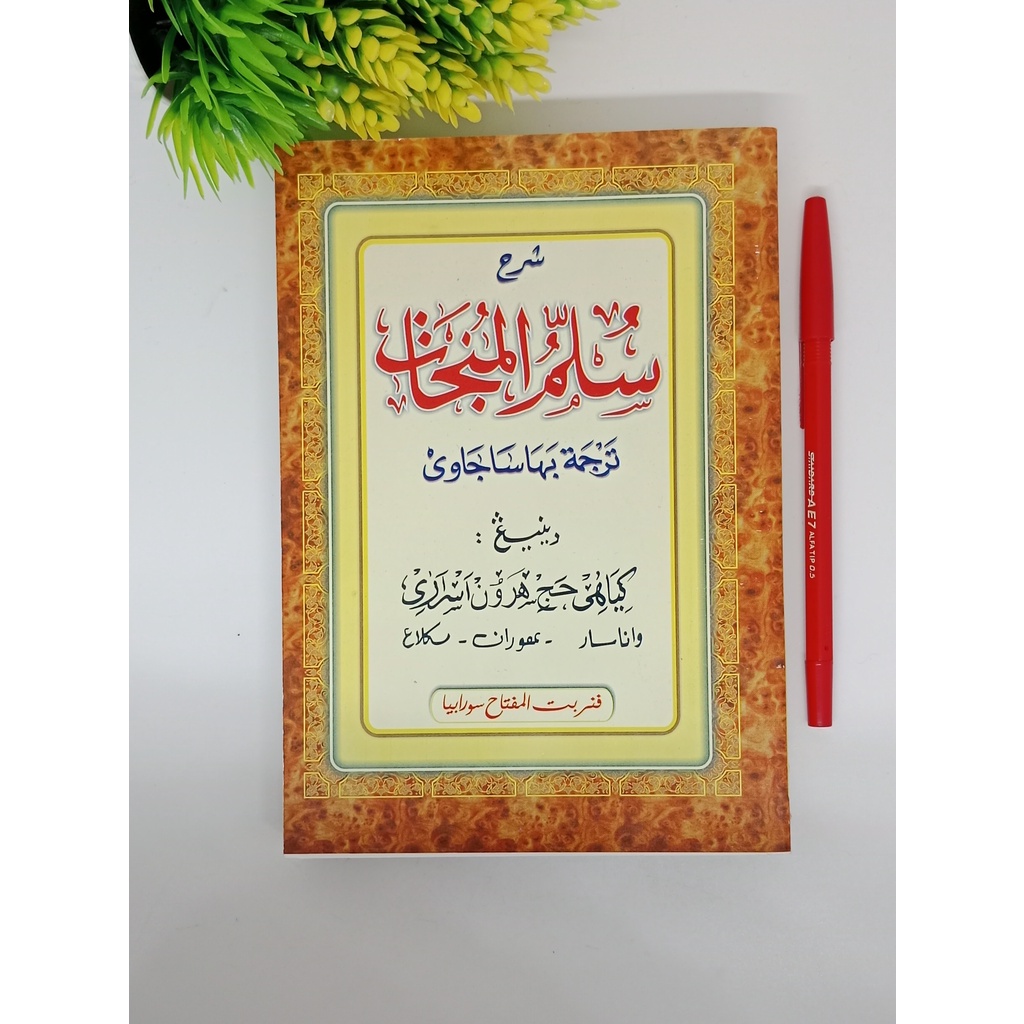 شرح
سُلَّمُ المُنجَات
تَرْجَمَة بَهَاسَا جَاوِىْ
دينيڠ :
كِيَاهِىْ حَجِ هَرَوْن اَسْرَارِىْ
واناسار -
فنربت المفتاح سورابيا
STANDARD AE7 ALFA TIP 0.5